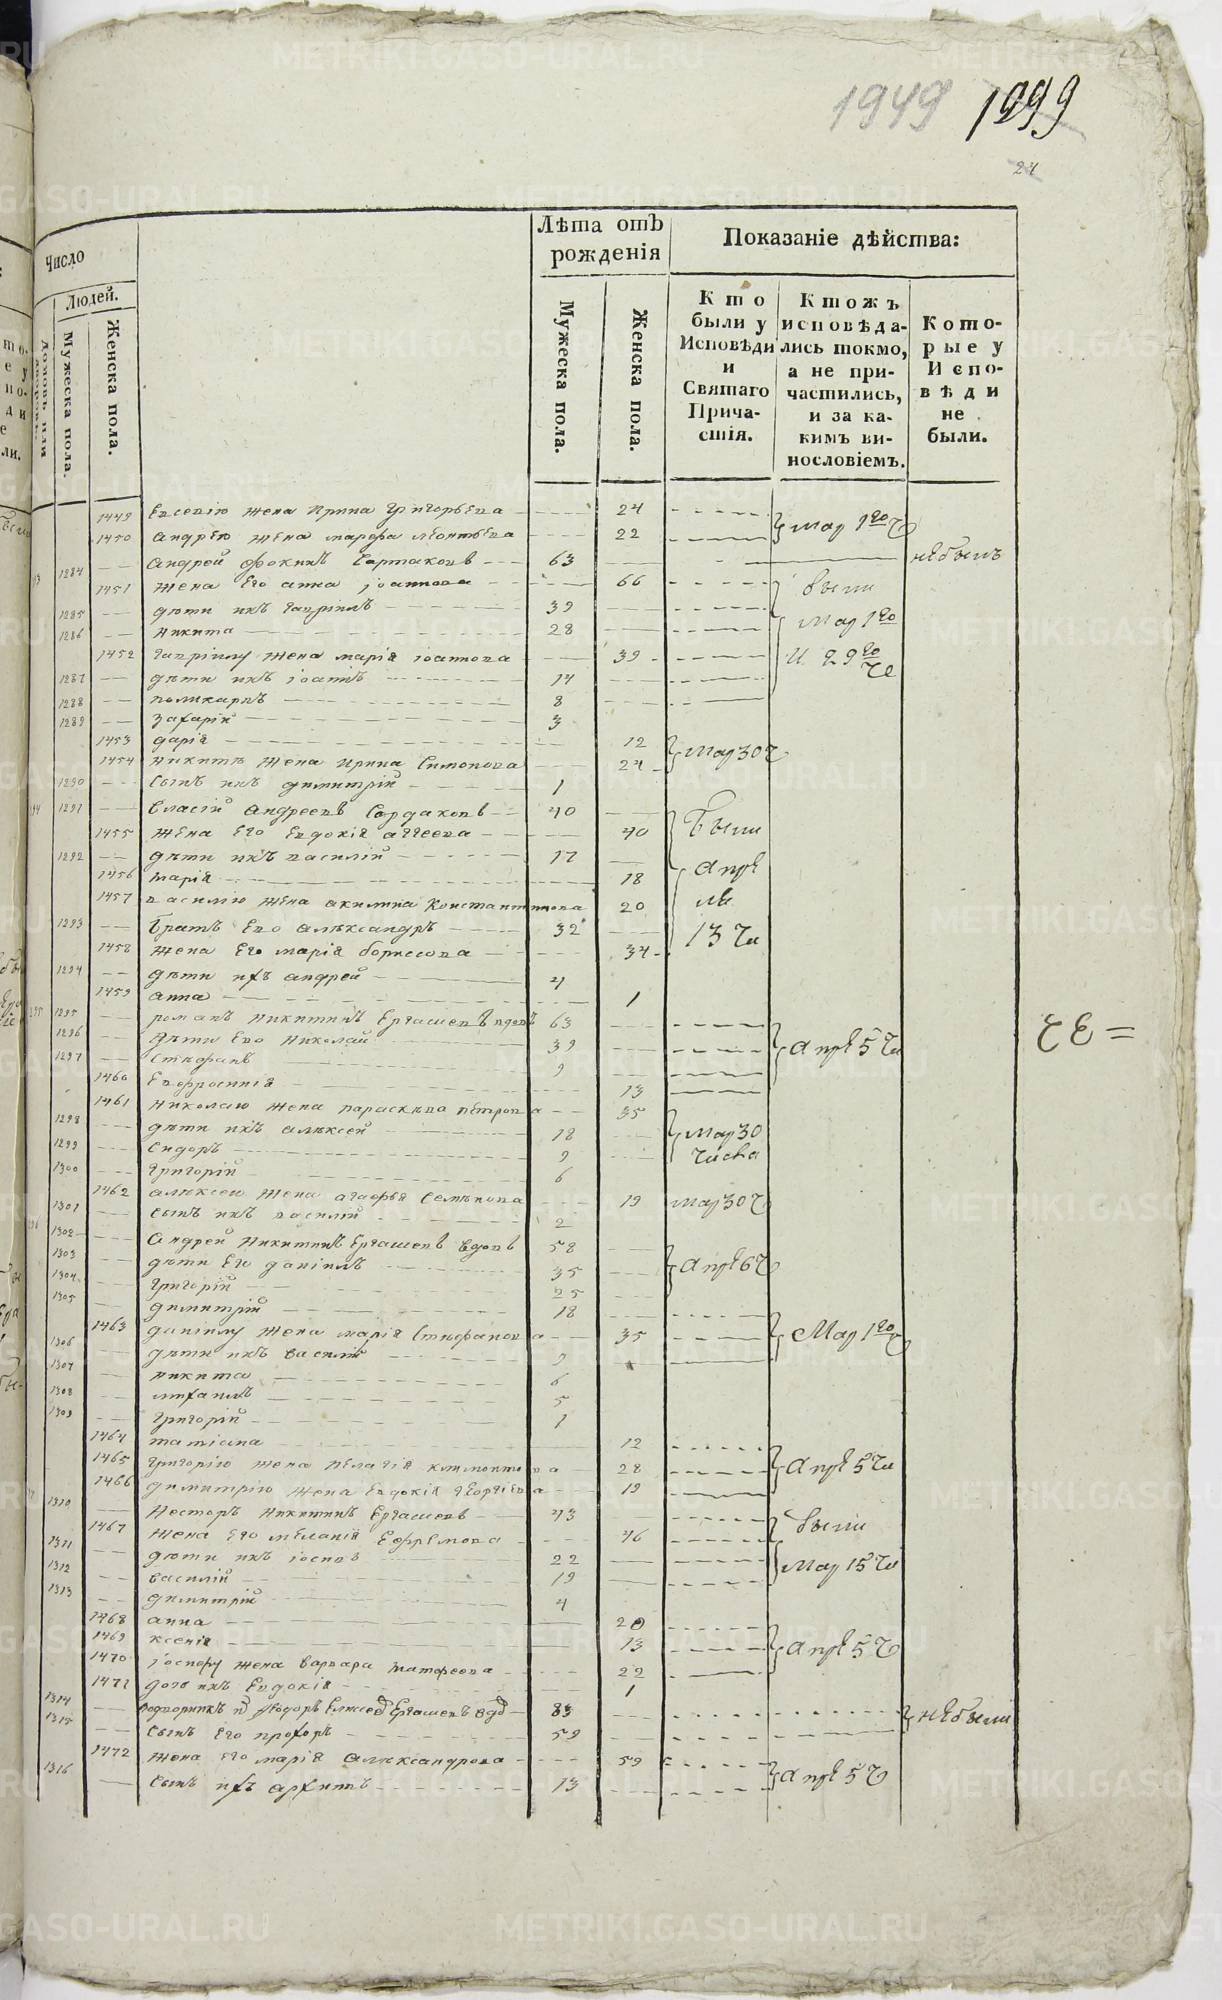 1949 1999
24
Число
Людей.
домовъ или дворовъ.
Мужеска пола.
Женска пола.
Лѣта отъ рожденія
Мужеска пола.
Женска пола.
Показаніе дѣйства:
Кто были у Исповѣди и Святаго Причастія.
Ктожъ исповѣдались токмо, а не причастились, и за какимъ винословіемъ.
Которые у Исповѣди не были.
1449 Евсевію жена Ирина Григорьева 24
1450 Андрею жена марѳа леонтьева 22 мар 1го Ч
1284 Андрей фокинъ 63 не былъ
1451 жена Его анна іоаннова 66 были
1285 дѣти ихъ гавріилъ 39
1286 никита 28 мар 1го
1452 гавріилу жена марія іоаннова 39 и 29го
1287 дѣти ихъ іоаннъ 14
1288 поликарпъ 8
1289 захарій 3
1453 дарія 12
1454 никитѣ жена Ирина Симонова 24 мар 30 ч
1290 сынъ ихъ димитрій 1
1291 Власій андреевъ 40
1455 жена Его Евдокія аггеева 40 были
1292 дѣти ихъ василій 17
1456 марія 18 апре
1457 василію жена акилина Константинова 20 ля
1293 братъ Его александръ 32
1458 жена Его марія борисова 34 13 чи
1294 дѣти ихъ андрей 4
1459 анна 1
1295 романъ никитинъ Ергашевъ вдовъ 63
1296 дѣти Его Николай 39 апре 5 чи
1297 стефанъ 9
1460 Евфросинія 13
1461 николаю жена параскева петрова 35
1298 дѣти ихъ алексей 18 мар 30
1299 сидоръ 9 числа
1300 григорій 6
1462 алексею жена агафья Семенова 19 мар 30 ч
1301 сынъ ихъ василій 2
1302 Андрей никитинъ Ергашевъ вдовъ 58
1303 дѣти Его даніилъ 35 апре 6 ч
1304 григорій 25
1305 димитрій 18
1463 даніилу жена марія Стефанова 35 мар 1го
1306 дѣти ихъ василій 9
1307 никита 6
1308 михаилъ 5
1309 григорій 1
1464 татіана 12
1465 григорію жена пелагія 28 апре 5 чи
1466 димитрію жена Евдокія георгіева 19
1310 Несторъ никитинъ Ергашевъ 43
1467 жена Его меланія Ефремова 46 были
1311 дѣти ихъ іосифъ 22
1312 василій 19 мар 15 чи
1313 димитрій 4
1468 анна 20
1469 ксенія 13 апре 5 ч
1470 іосифу жена варвара матфеева 22
1471 дочь ихъ Евдокія 1
1314 Ергашевъ 83 не были
1315 сынъ Его прохоръ 59
1472 жена Его марія александрова 59
1316 сынъ ихъ архипъ 13 апре 5 ч